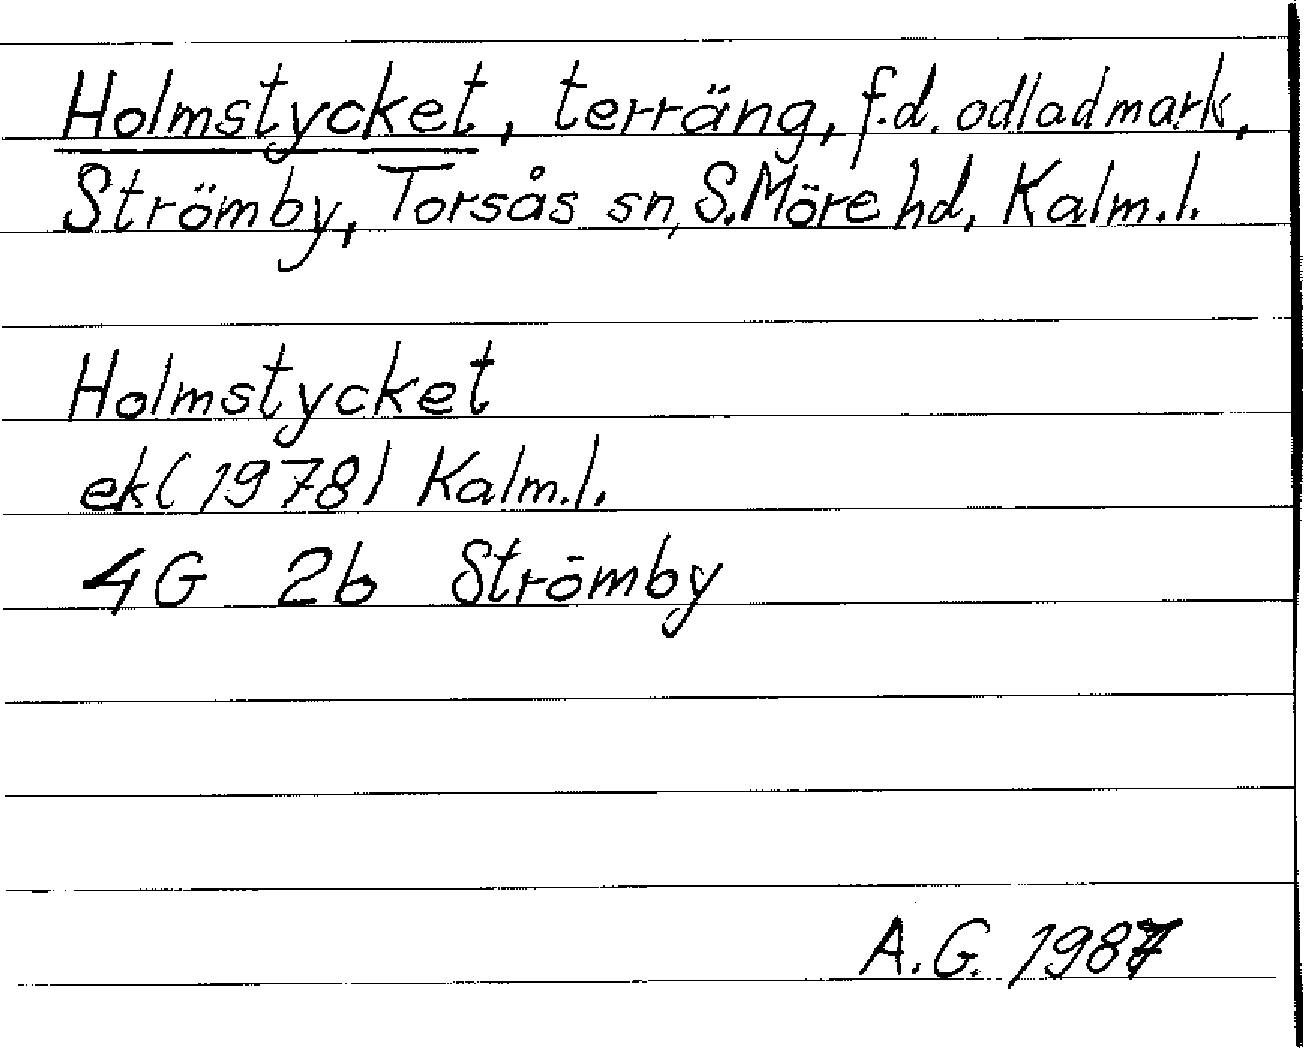 Holmstycket, terräng, f.d. odlad mark,
Strömby, Torsås sn, S. Möre hd, Kalm. l.
Holmstycket
ek (1978) Kalm. l.
4G 2b Strömby
A.G. 1987